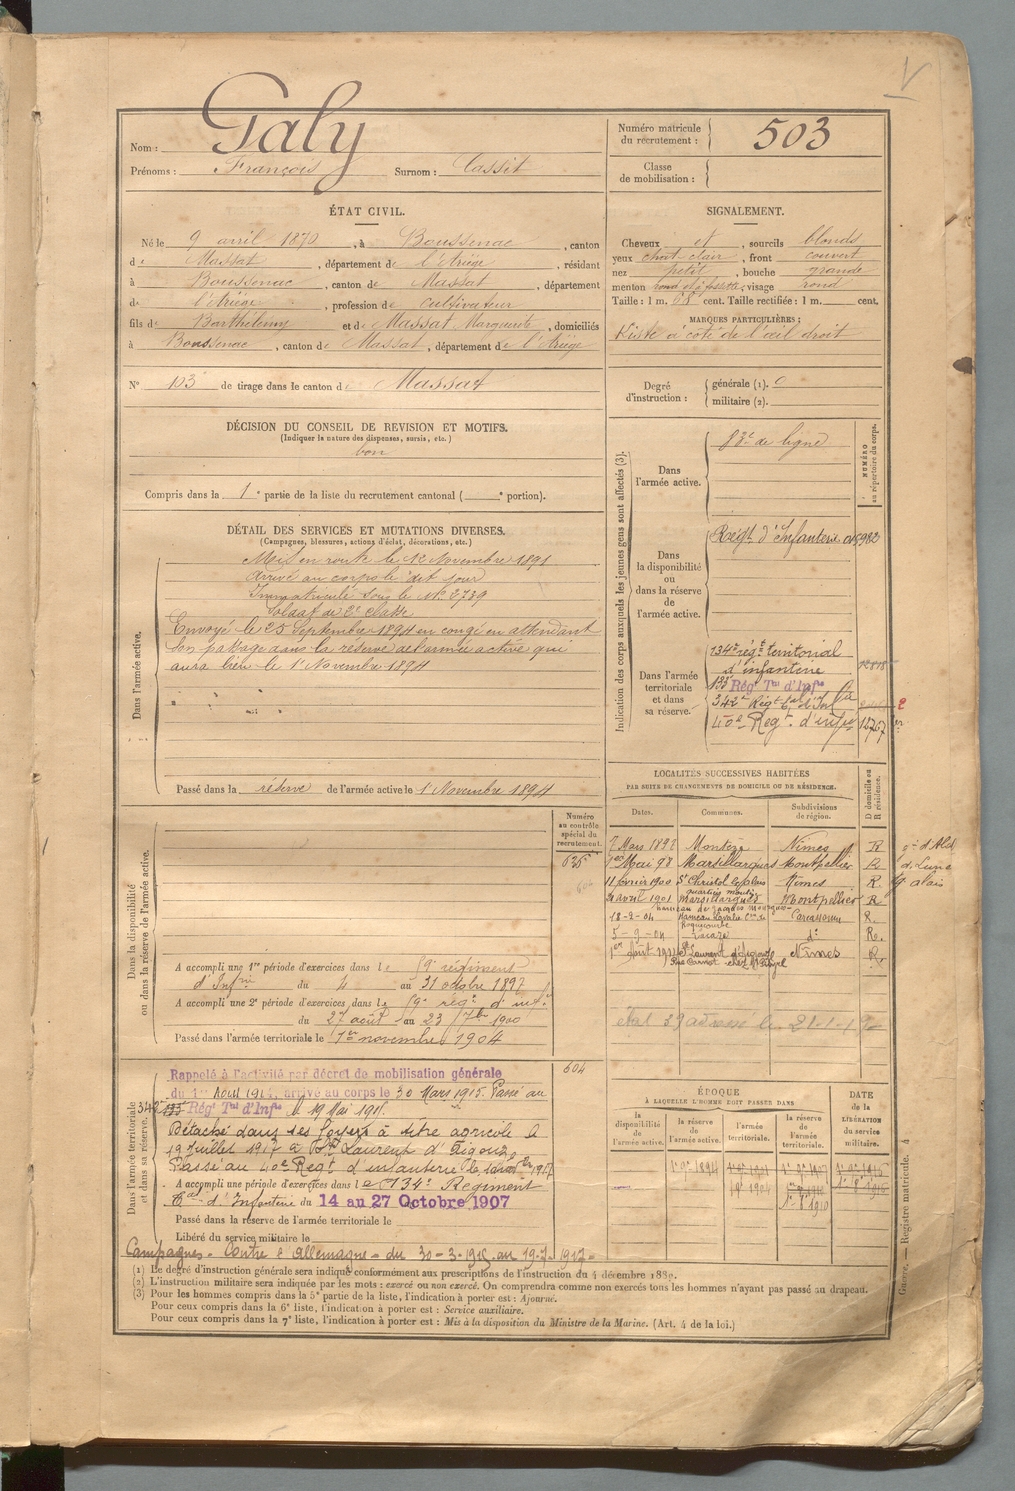 Nom : Galy
Prénoms : François Surnom : Cassit
Numéro matricule du recrutement : 503
Classe de mobilisation :
ÉTAT CIVIL.
Né le 9 avril 1870, à Boussenac, canton
de Massat, département de l'Ariège, résidant
à Boussenac, canton de Massat, département
de l'Ariège, profession de cultivateur
fils de Barthélemy et de Massat Marguerite, domiciliés
à Boussenac, canton de Massat, département de l'Ariège
N° 103 de tirage dans le canton de Massat
SIGNALEMENT.
Cheveux et, sourcils blonds
yeux chat. clair, front couvert
nez petit, bouche grande
menton rond, visage rond
Taille : 1 m. 68 cent. Taille rectifiée : 1 m. cent.
MARQUES PARTICULIÈRES :
Kiste à côté de l'œil droit
Degré d'instruction : générale (1). 0
militaire (2).
DÉCISION DU CONSEIL DE REVISION ET MOTIFS.
(Indiquer la nature des dispenses, sursis, etc.)
bon
Compris dans la 1e partie de la liste du recrutement cantonal ( e portion).
DÉTAIL DES SERVICES ET MUTATIONS DIVERSES.
(Campagnes, blessures, actions d'éclat, décorations, etc.)
Dans l'armée active.
Mis en route le 12 Novembre 1891
Arrivé au corps le dit jour
Immatriculé sous le N° 2739
Soldat de 2e classe
Envoyé le 25 Septembre 1894 en congé en attendant
son passage dans la réserve de l'armée active qui
aura lieu le 1 Novembre 1894
Passé dans la réserve de l'armée active le 1 Novembre 1894
Indication des corps auxquels les jeunes gens sont affectés (3).
NUMÉRO au répertoire du corps.
Dans l'armée active.
83e de ligne
Dans la disponibilité ou dans la réserve de l'armée active.
Régt. d'Infanterie
Dans l'armée territoriale et dans sa réserve.
134e régt territorial
d'infanterie
135 Régt Tal d'Infie
342e Régt
40e Regt. d'infie 12767
LOCALITÉS SUCCESSIVES HABITÉES
PAR SUITE DE CHANGEMENTS DE DOMICILE OU DE RÉSIDENCE.
Dates. Communes. Subdivisions de région. D domicile ou R résidence.
Mars 1892 Montèze Nîmes R
1er Mai 98 Marsillargues Montpellier R
11 février 1900 St Christol Nîmes R.
avril 1901 Marsillargues Montpellier R
18-2-04 Hameau Carcassonne R.
5-9-04 Lacaze do R.
1er Août 1911 St Laurent d'Aigouze Nîmes R.
Rue Carnot chez
état 39 adressé le 21-1-
Dans la disponibilité ou dans la réserve de l'armée active.
Numéro au contrôle spécial du recrutement.
A accompli une 1re période d'exercices dans le 59e régiment
d'Infrie du 4 au 31 octobre 1897
A accompli une 2e période d'exercices dans le 59e régt d'inf.
du 27 août au 23 7bre 1900
Passé dans l'armée territoriale le 1er novembre 1904
604
Dans l'armée territoriale et dans sa réserve.
Rappelé à l'activité par décret de mobilisation générale
du 1er Août 1914, arrivé au corps le 30 Mars 1915. Passé au
342e 135 Régt Tal d'Infie le 19 Mai 1915.
Détaché dans ses foyers à titre agricole le
19 Juillet 1917 à St Laurent d'Aigouze
Passé au 40e Regt. d'infanterie le 1917
A accompli une période d'exercices dans le 134e Régiment
Tal d'Infanterie du 14 au 27 Octobre 1907
Passé dans la réserve de l'armée territoriale le
Libéré du service militaire le
Campagnes - Contre l'Allemagne - du 30-3-1915 au 19-7-1917 -
ÉPOQUE
À LAQUELLE L'HOMME DOIT PASSER DANS
la disponibilité de l'armée active. la réserve de l'armée active. l'armée territoriale. la réserve de l'armée territoriale.
DATE de la LIBÉRATION du service militaire.
(1) Le degré d'instruction générale sera indiqué conformément aux prescriptions de l'instruction du 4 décembre 1889.
(2) L'instruction militaire sera indiquée par les mots : exercé ou non exercé. On comprendra comme non exercés tous les hommes n'ayant pas passé au drapeau.
(3) Pour les hommes compris dans la 5e partie de la liste, l'indication à porter est : Ajourné.
Pour ceux compris dans la 6e liste, l'indication à porter est : Service auxiliaire.
Pour ceux compris dans la 7e liste, l'indication à porter est : Mis à la disposition du Ministre de la Marine. (Art. 4 de la loi.)
Guerre. — Registre matricule. 4